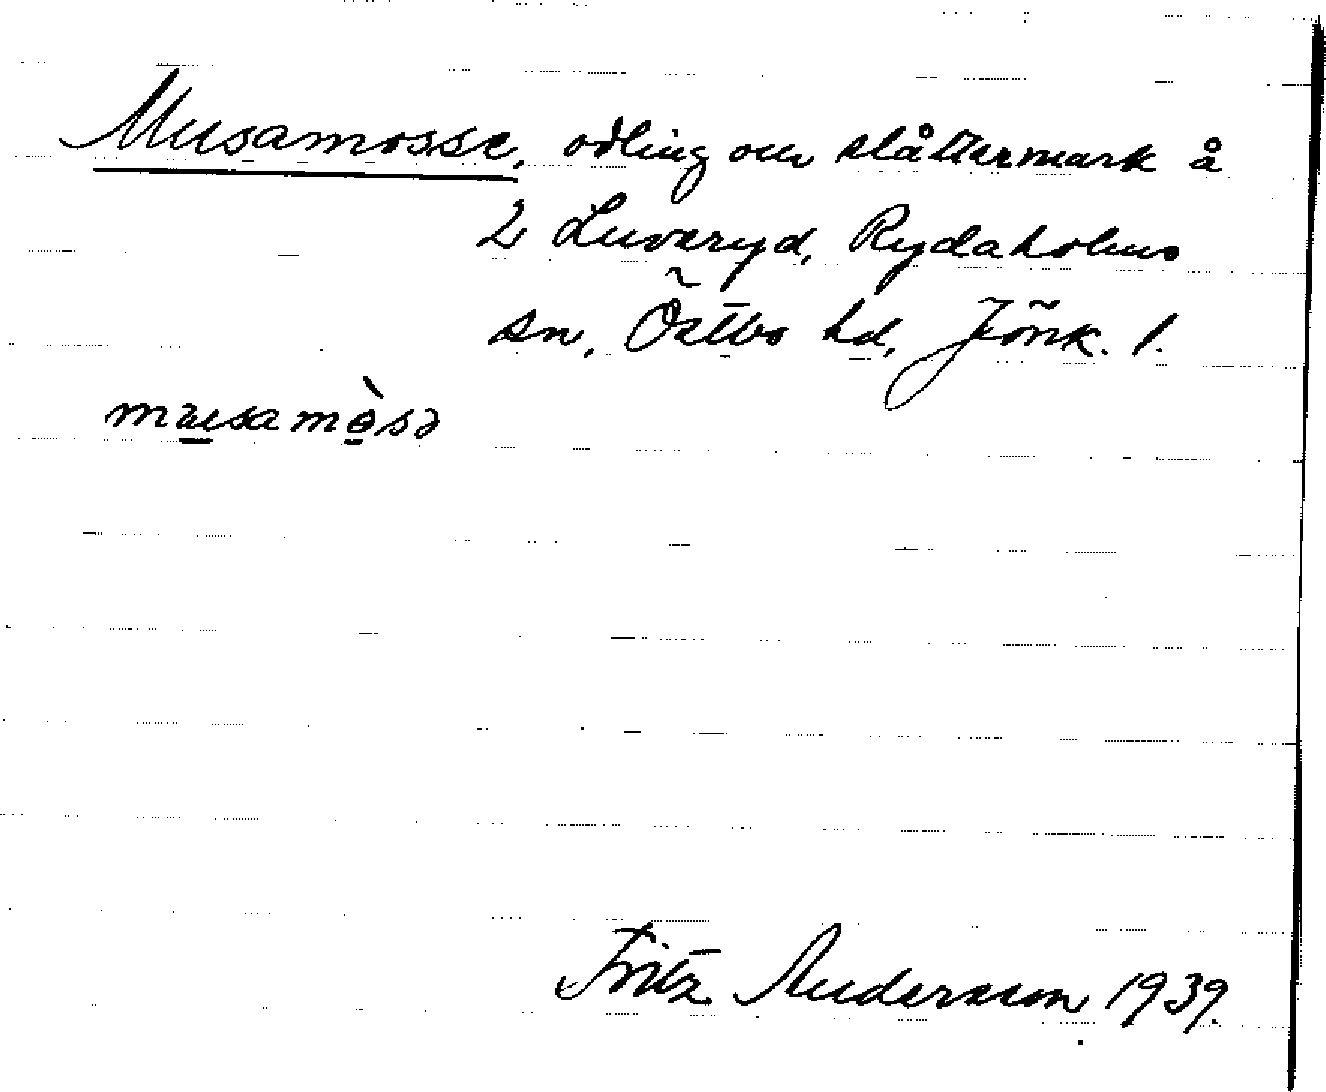 Musamosse, odling och slåttermark å
2 Luvaryd, Rydaholms
sn, Östbo hd, Jönk. l.
musamòsə
Fritz Andersson 1939.